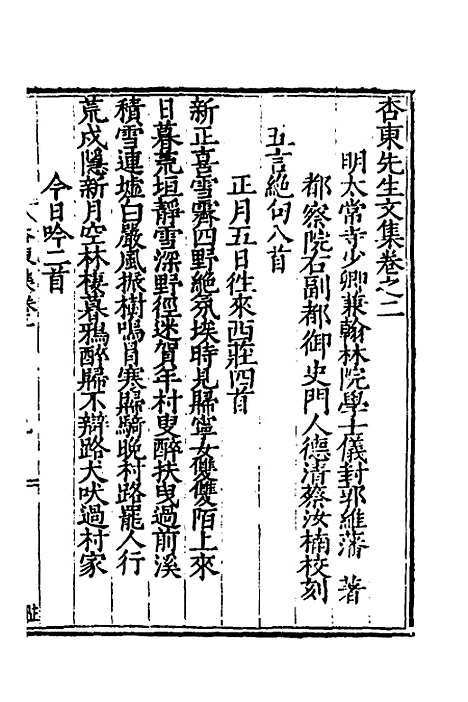 杏東先生文集卷之二
明太常寺少卿兼翰林院學士儀封郭維藩著
都察院右副都御史門人德清蔡汝楠校刻
五言絶句八首
正月五日往來西莊四首
新正喜雪霽四野絶氛埃時見歸寧女雙雙陌上來
日暮荒垣靜雪深野徑迷賀年村叟醉扶曳過前溪
積雪連墟白嚴風振樹鳴冒寒歸騎晚村路罷人行
荒戍隱新月空林棲暮鴉醉歸不辯路犬吠過村家
今日吟二首